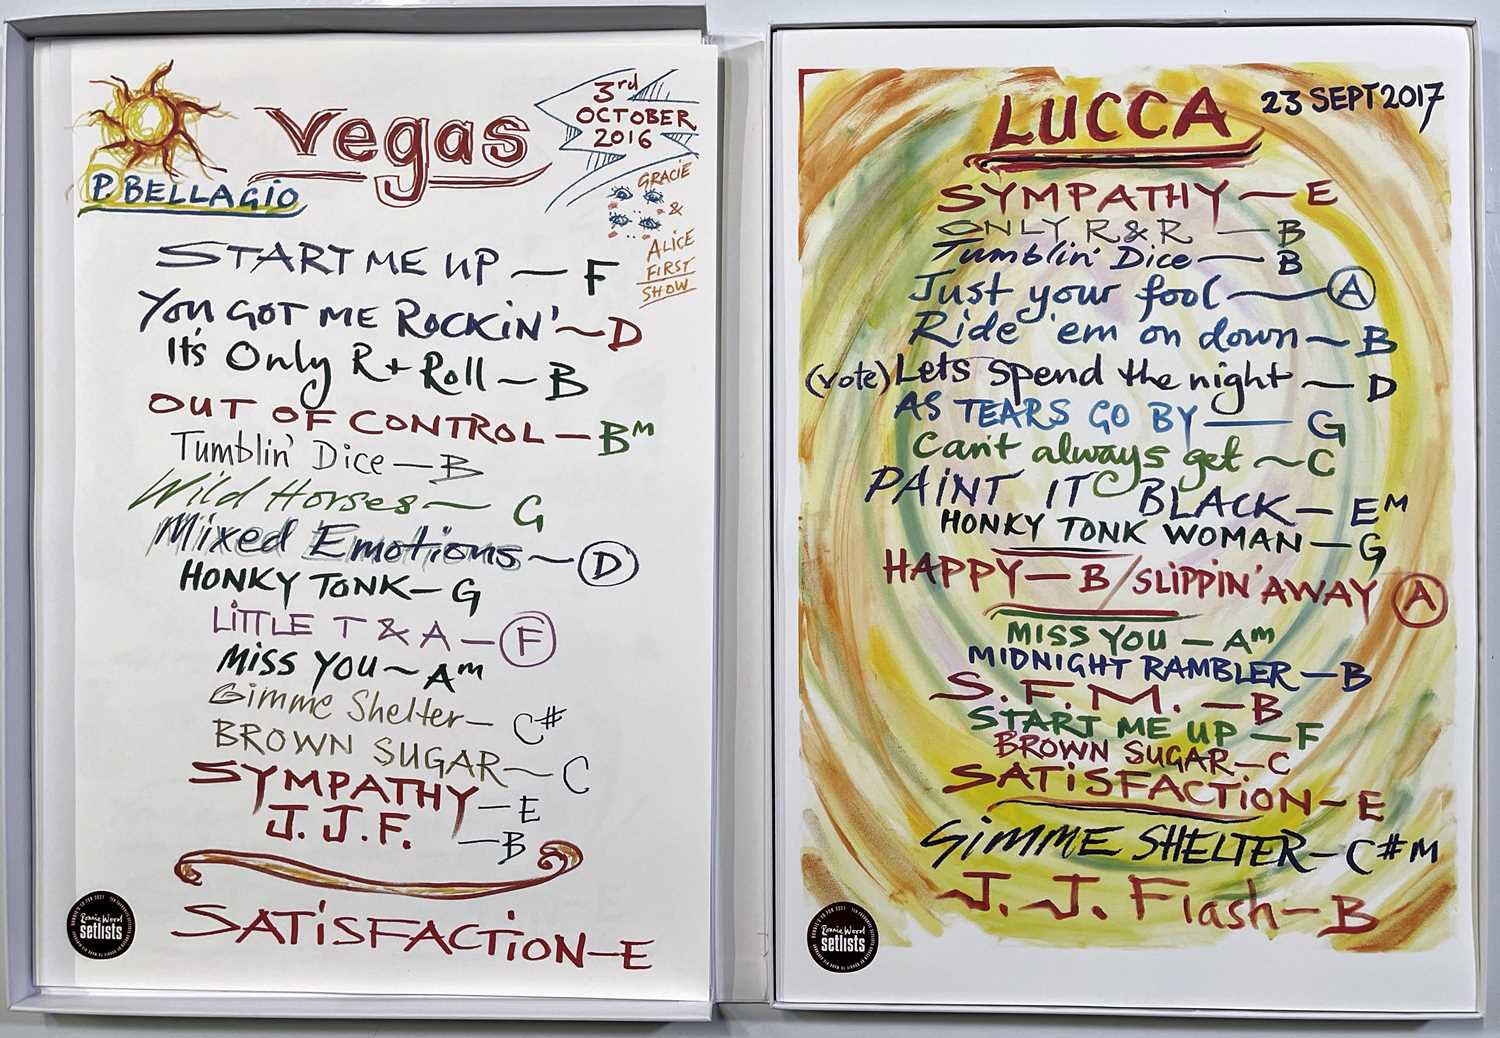 Vegas
3rd
OCTOBER
2016
P. BELLAGIO
GRACIE
&
ALICE
FIRST
SHOW
START ME UP — F
YOU GOT ME ROCKIN' — D
It's Only R + Roll — B
OUT OF CONTROL — Bm
Tumblin' Dice — B
Wild Horses — G
Mixed Emotions — D
HONKY TONK — G
LITTLE T & A — F
MISS YOU — Am
Gimme Shelter — C#
BROWN SUGAR — C
SYMPATHY — E
J.J.F. — B
SATiSFACTiON — E
Ronnie Wood
setlists
LUCCA
23 SEPT 2017
SYMPATHY — E
ONLY R & R — B
Tumblin' Dice — B
Just your fool — A
Ride 'em on down — B
(vote) Lets spend the night — D
AS TEARS GO BY — G
Can't always get — C
PAINT IT BLACK — Em
HONKY TONK WOMAN — G
HAPPY — B / SLIPPIN' AWAY A
MISS YOU — Am
MIDNIGHT RAMBLER — B
S.F.M. — B
START ME UP — F
BROWN SUGAR — C
SATiSFACTiON — E
GiMME SHELTER — C#m
J.J. Flash — B
Ronnie Wood
setlists